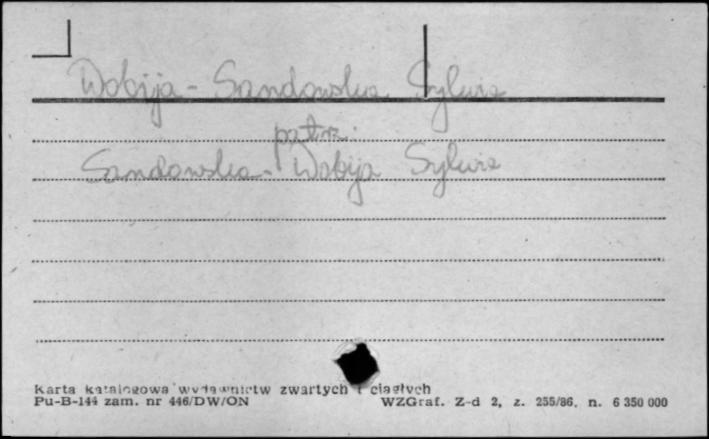 Wobija - Sandowska Sylwia
patrz.
Sandowska - Wobija Sylwia
Karta katalogowa wydawnictw zwartych i ciągłych
Pu-B-144 zam. nr 446/DW/ON WZGraf. Z-d 2, z. 255/86, n. 6 350 000